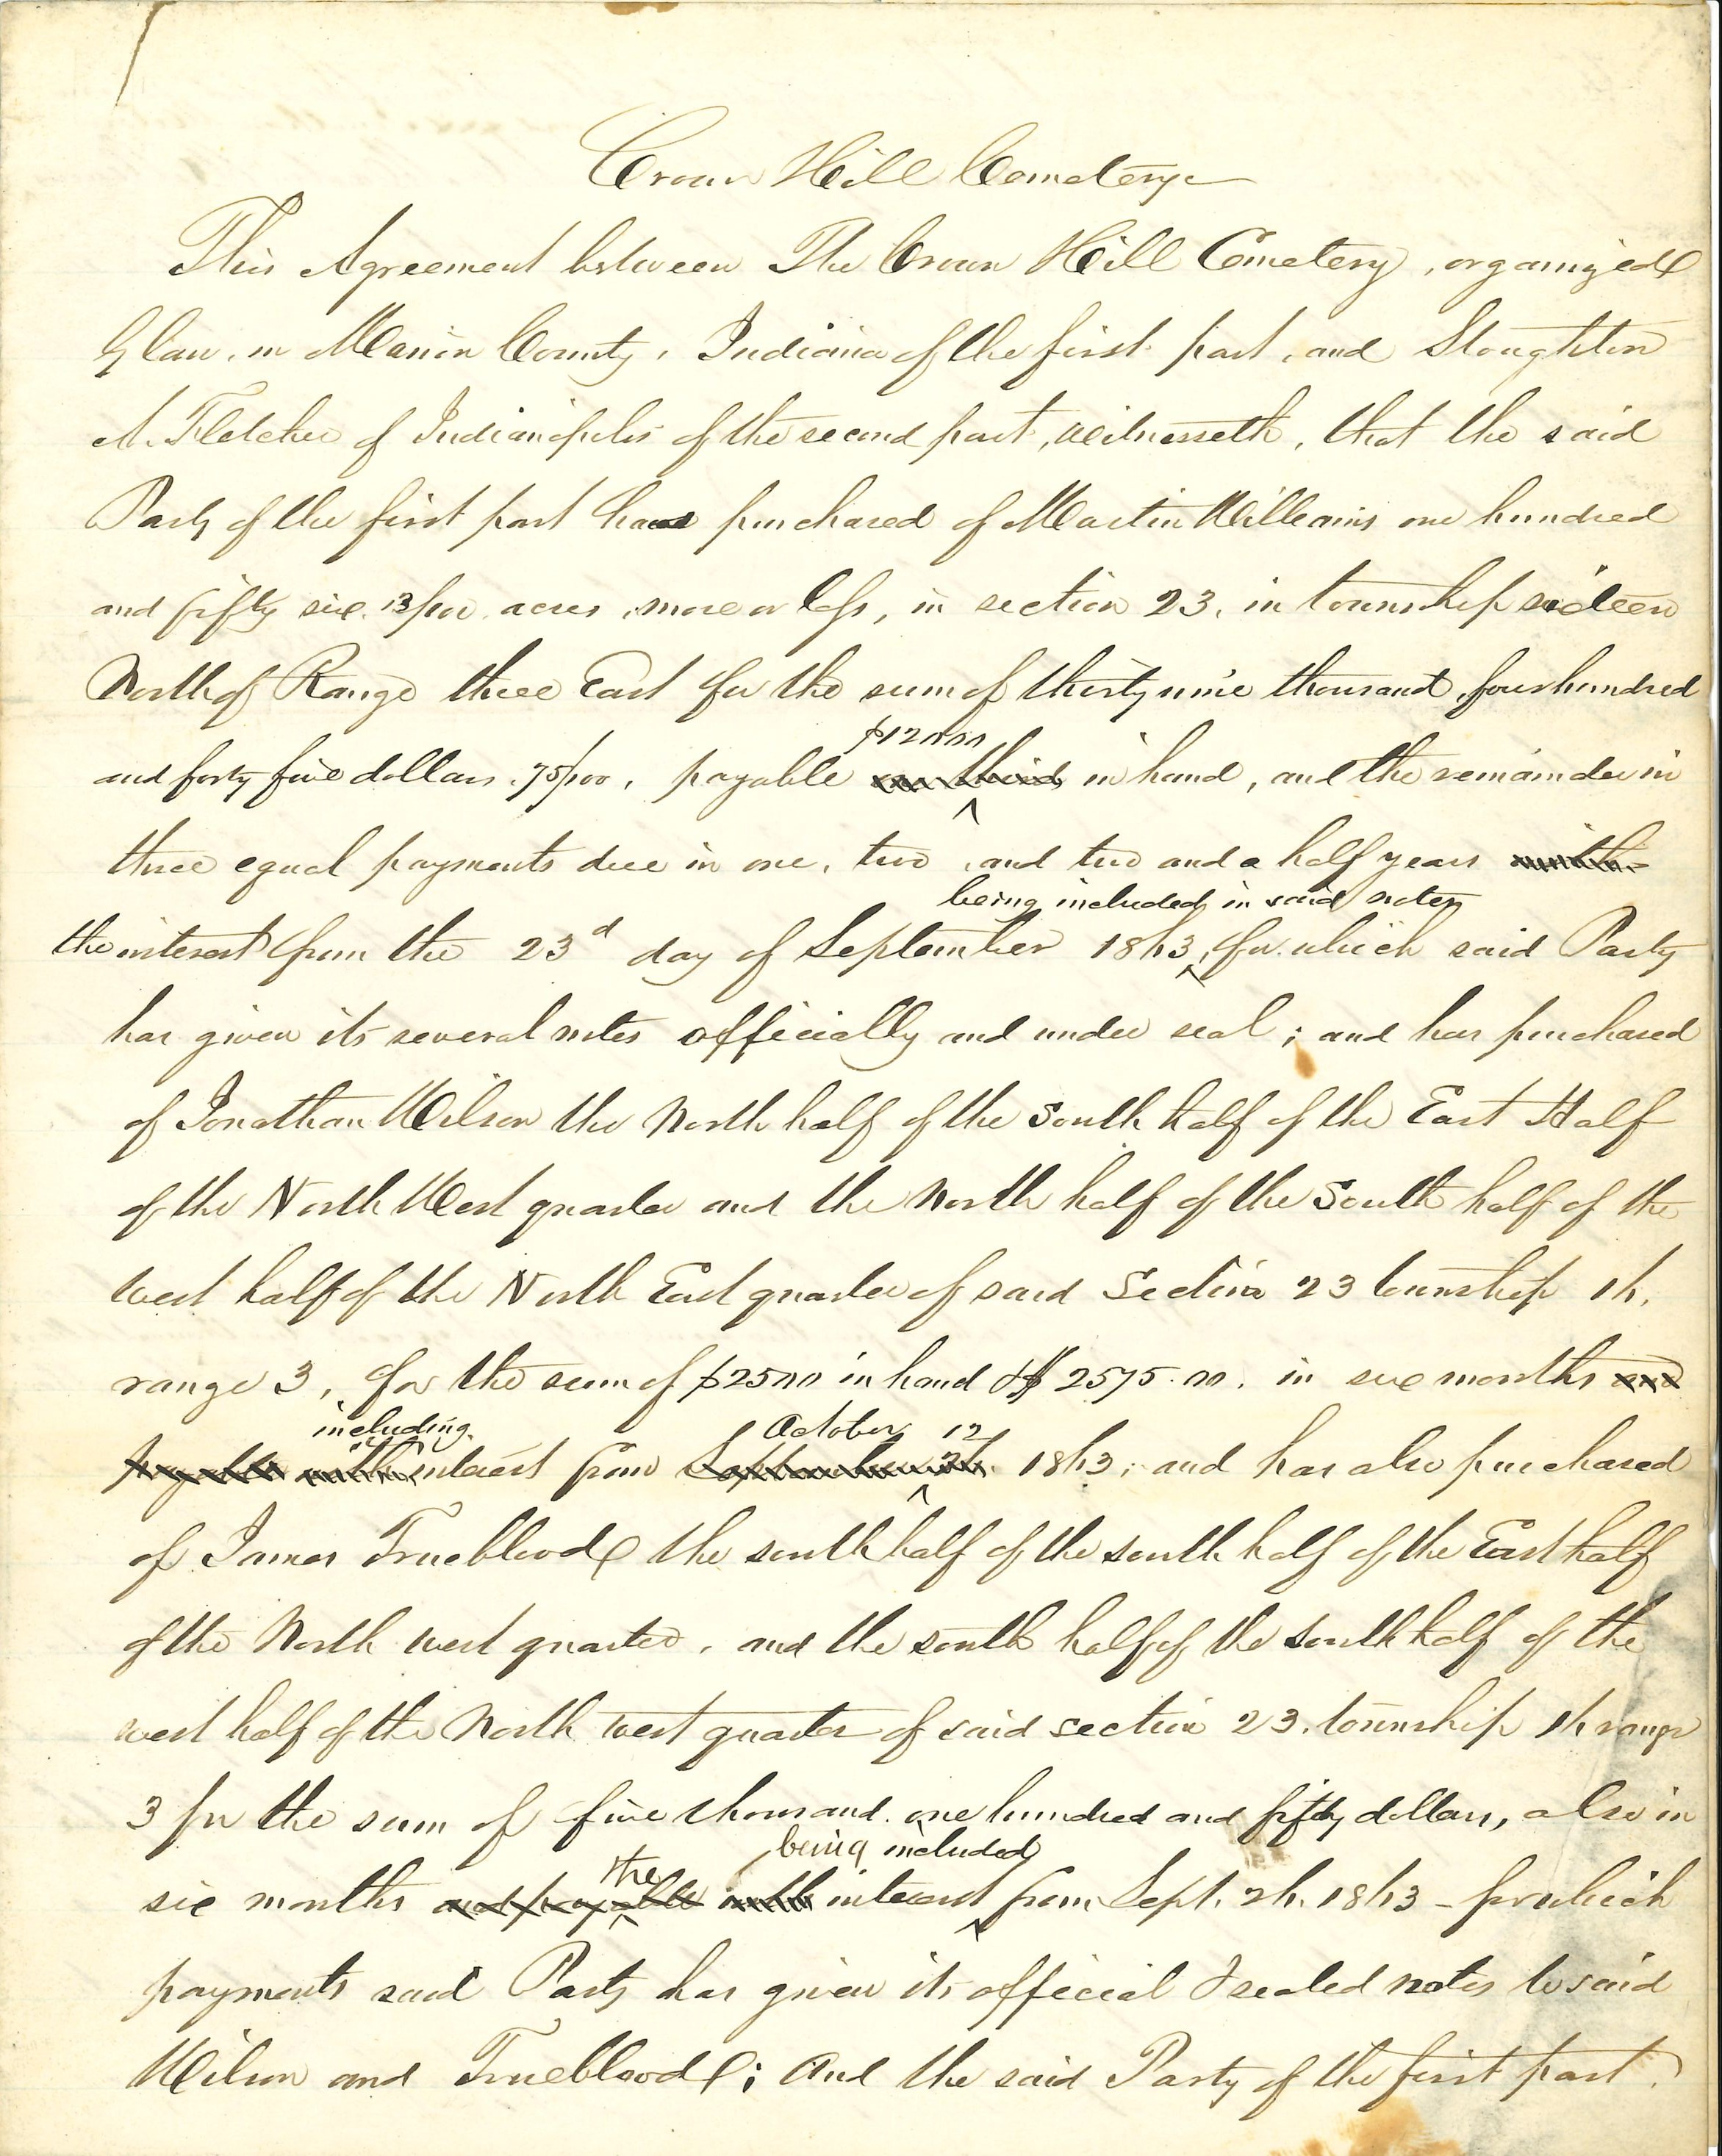 Crown Hill Cemetery
This Agreement between The Crown Hill Cemetery, organized
by law, in Marion County, Indiana of the first part, and Stoughton
A. Fletcher of Indianapolis of the second part, witnesseth, that the said
Party of the first part has purchased of Martin Williams one hundred
and fifty six. 13/100 acres, more or less, in section 23, in township sixteen
North of Range three East for the sum of thirty nine thousand, four hundred
$12000
and forty five dollars. 75/100, payable one third in hand, and the remainder in
three equal payments due in one, two, and two and a half years with
being included in said notes
the interest from the 23d day of September 1863, for which said Party
has given its several notes officially and under seal; and has purchased
of Jonathan Wilson the North half of the South half of the East Half
of the North West quarter and the North half of the South half of the
west half of the North East quarter of said Section 23 township 16.
range 3, for the sum of $2500 in hand & $2575.00. in six months and
including October 12
payable with interest from September 26. 1863; and has also purchased
of James Trueblood the south half of the south half of the East half
of the North west quarter, and the south half of the south half of the
west half of the North west quarter of said section 23. township 16 range
3 for the sum of five thousand one hundred and fifty dollars, also in
the being included
six months and payable with interest from Sept. 26. 1863 - for which
payments said Party has given its official & sealed notes to said
Wilson and Trueblood; And the said Party of the first part.